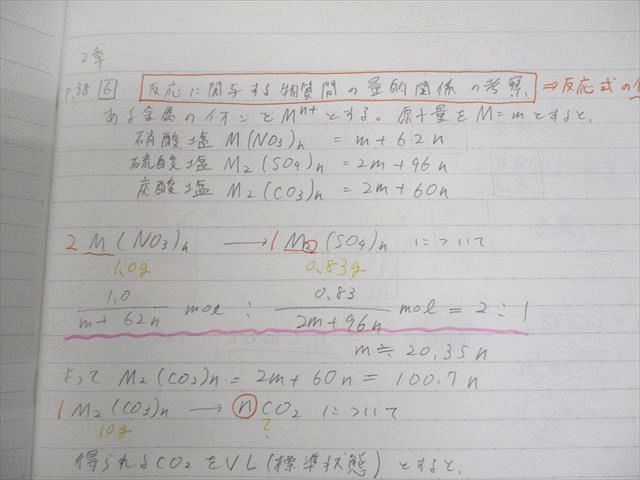 2章
p.38 6 反応に関与する物質間の量的関係の考察 ⇒反応式の
ある金属のイオンをMⁿ⁺とする。原子量をM=mとすると、
硝酸塩 M(NO3)n = m+62n
硫酸塩 M2(SO4)n =2m+96n
炭酸塩 M2(CO3)n =2m+60n
2 M(NO3)n → 1 M2(SO4)n について
1.0g 0.83g
1.0/m+62n mol : 0.83/2m+96n mol = 2:1
m≒20.35n
よって M2(CO3)n = 2m+60n = 100.7n
1 M2(CO3)n → nCO2 について
10g ?
得られるCO2をVL(標準状態)とすると、